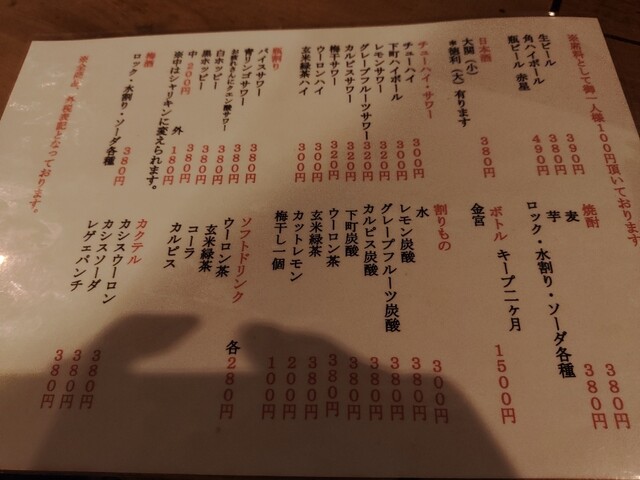 ※席料として御一人様100円頂いております
生ビール 390円
角ハイボール 380円
瓶ビール 赤星 490円
日本酒
大関（小） 380円
＊徳利（大）有ります
チューハイ・サワー
チューハイ 300円
下町ハイボール 300円
レモンサワー 320円
グレープフルーツサワー 320円
カルピスサワー 320円
梅干サワー 320円
ウーロンハイ 300円
玄米緑茶ハイ 300円
瓶割り
バイスサワー 380円
青リンゴサワー 380円
お疲れさんにクエン酸サワー 380円
白ホッピー 380円
黒ホッピー 380円
中200円 外180円
※中はシャリキンに変えられます。
梅酒
ロック・水割り・ソーダ各種 380円
外税表記となっております。
焼酎
麦 380円
芋 380円
ロック・水割り・ソーダ各種
ボトル キープ二ヶ月
金宮 1500円
割りもの
水 300円
レモン炭酸 380円
グレープフルーツ炭酸 380円
カルピス炭酸 380円
下町炭酸 380円
ウーロン茶 380円
玄米緑茶 380円
カットレモン 200円
梅干し一個 100円
ソフトドリンク
ウーロン茶 各280円
玄米緑茶
コーラ
カルピス
カクテル
カシスウーロン 380円
カシスソーダ 380円
レゲエパンチ 380円